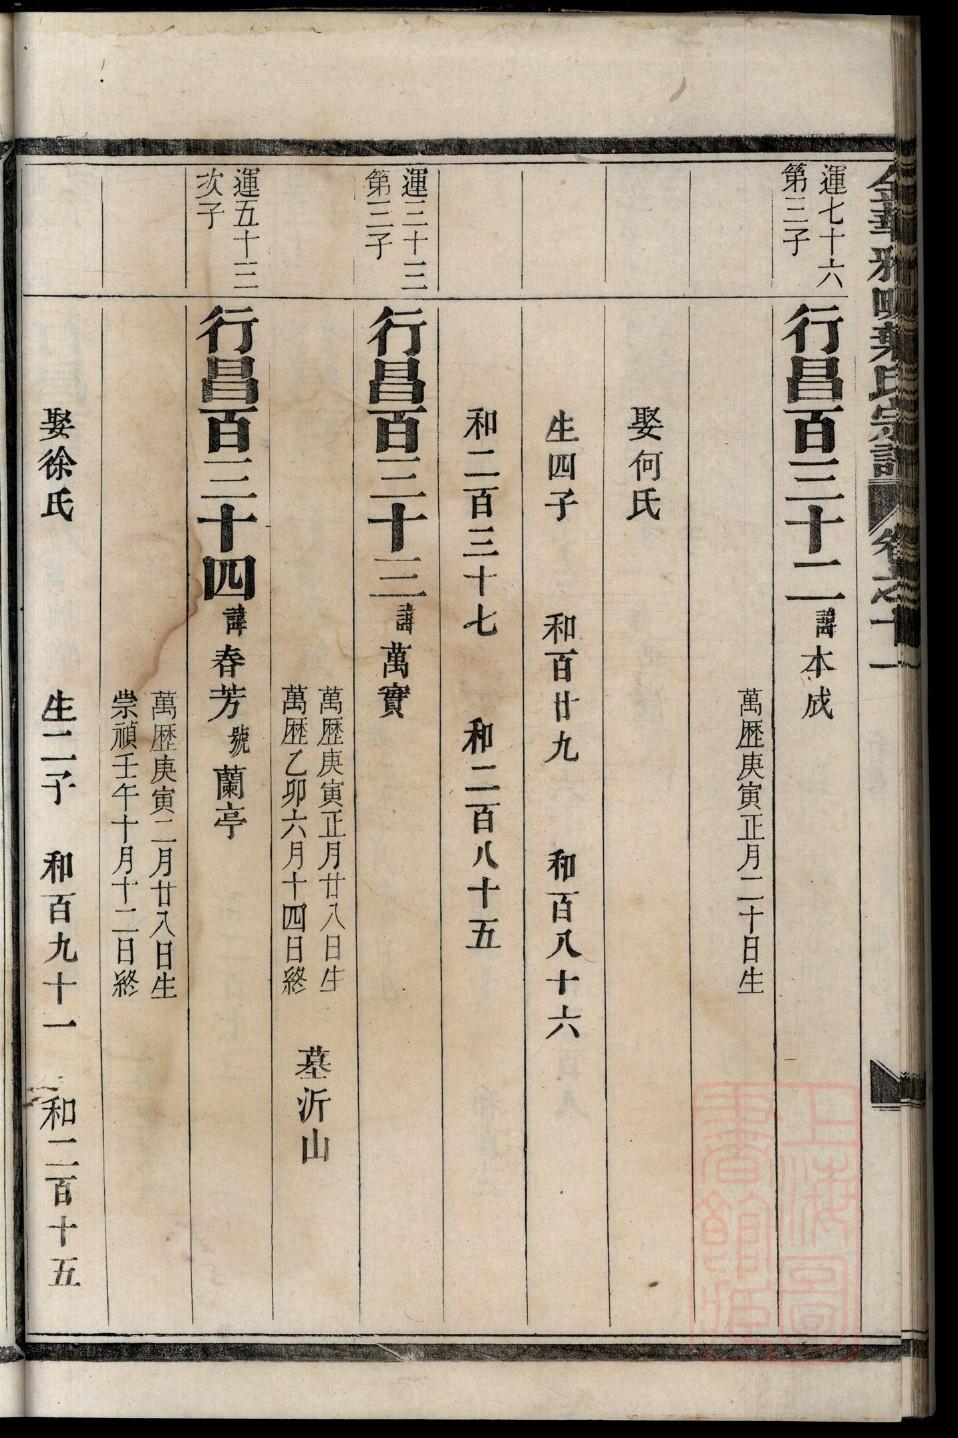 金華雅畈葉氏宗譜 卷之十一
運七十六
第三子
行昌百三十二 諱本成
萬歷庚寅正月二十日生
娶何氏
生四子 和百廿九 和百八十六
和二百三十七 和二百八十五
運三十三
第三子
行昌百三十三 諱萬實
萬歷庚寅正月廿八日生
萬歷乙卯六月十四日終 墓沂山
運五十三
次子
行昌百三十四 諱春芳 號蘭亭
萬歷庚寅二月廿八日生
崇禎壬午十月十二日終
娶徐氏 生二子 和百九十一 和二百十五
上海圖
書館藏